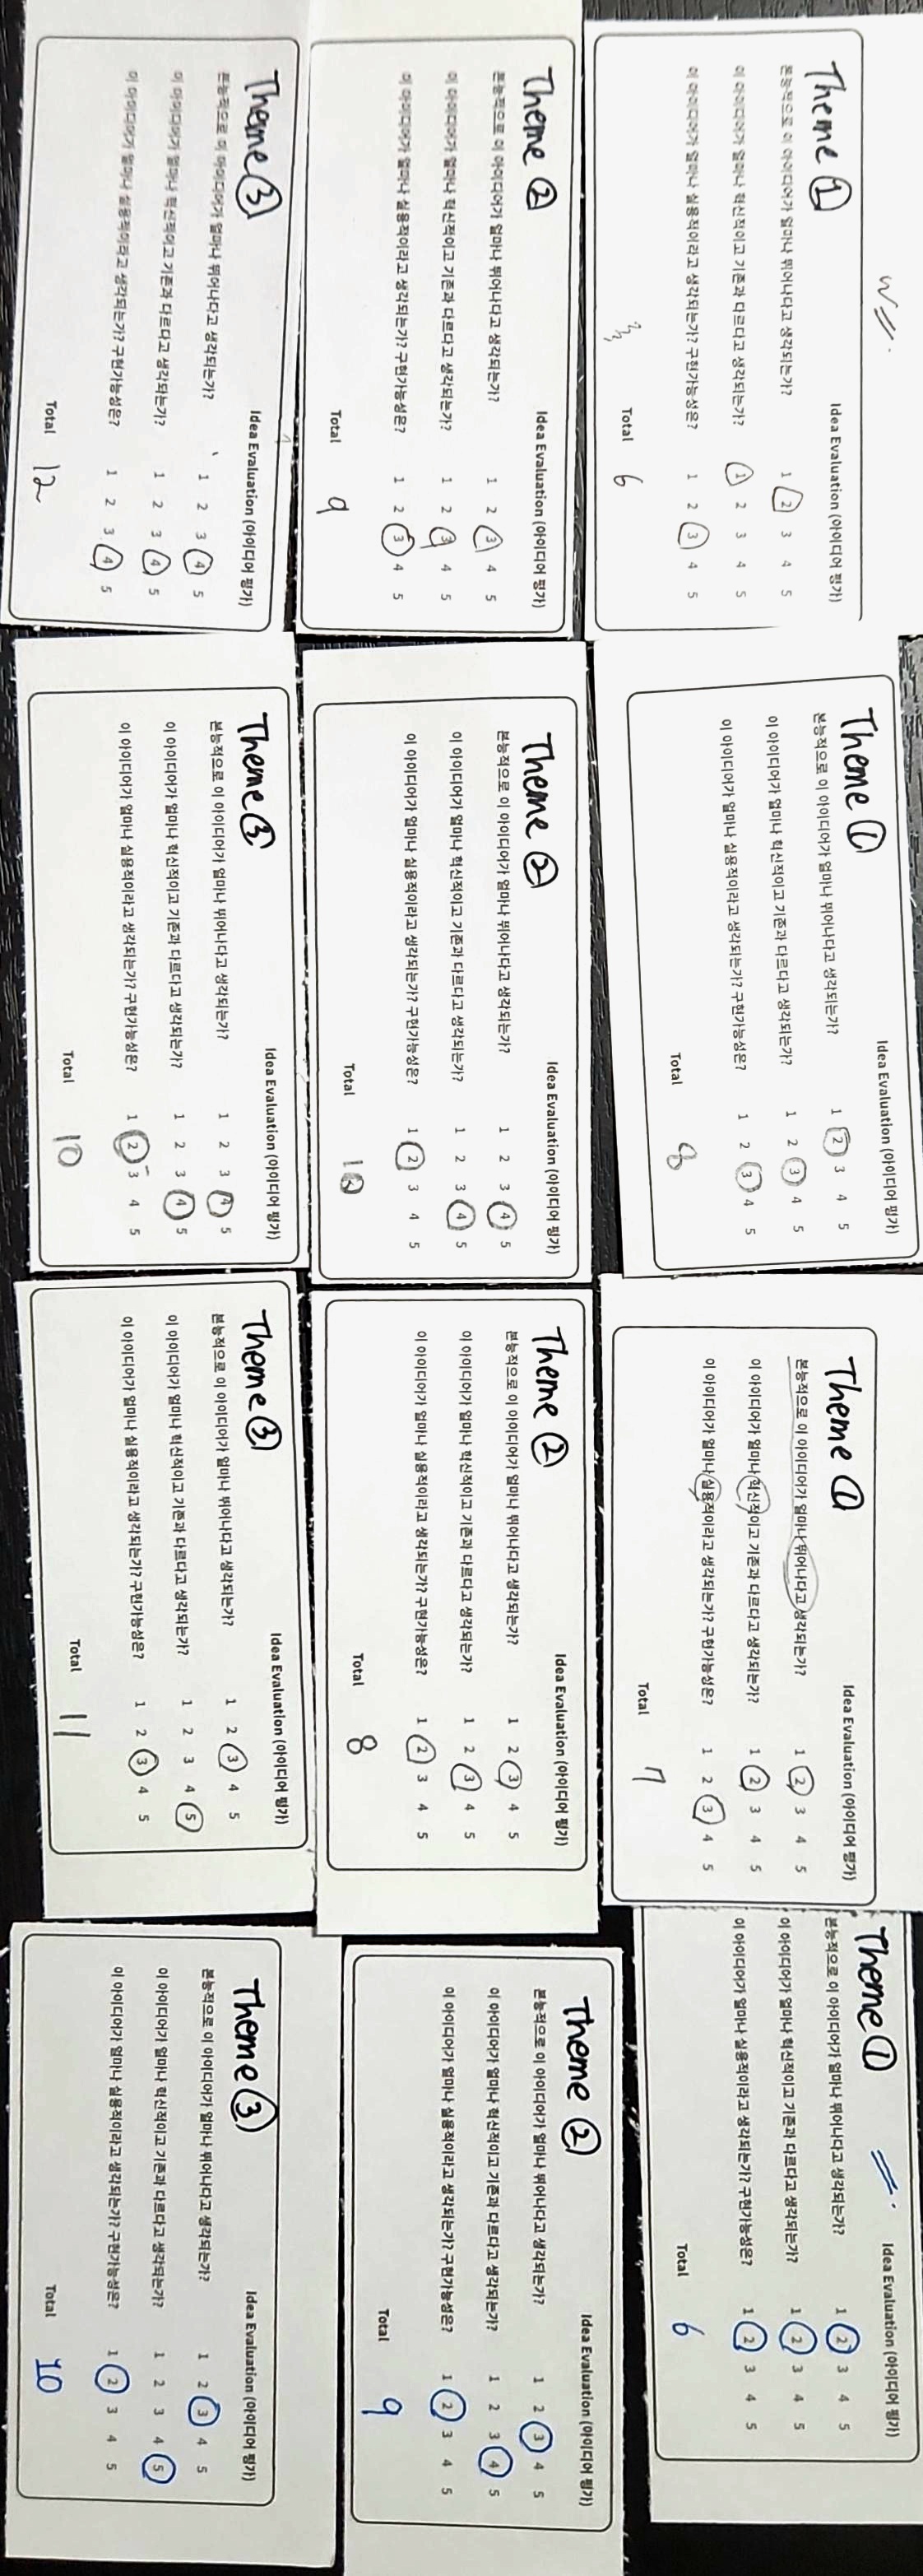 Theme ① Idea Evaluation (아이디어 평가)
본능적으로 이 아이디어가 얼마나 뛰어나다고 생각되는가? 1 2 3 4 5
이 아이디어가 얼마나 혁신적이고 기존과 다르다고 생각되는가? 1 2 3 4 5
이 아이디어가 얼마나 실용적이라고 생각되는가? 구현가능성은? 1 2 3 4 5
Total 6
Theme ① Idea Evaluation (아이디어 평가)
본능적으로 이 아이디어가 얼마나 뛰어나다고 생각되는가? 1 2 3 4 5
이 아이디어가 얼마나 혁신적이고 기존과 다르다고 생각되는가? 1 2 3 4 5
이 아이디어가 얼마나 실용적이라고 생각되는가? 구현가능성은? 1 2 3 4 5
Total 8
Theme ① Idea Evaluation (아이디어 평가)
본능적으로 이 아이디어가 얼마나 뛰어나다고 생각되는가? 1 2 3 4 5
이 아이디어가 얼마나 혁신적이고 기존과 다르다고 생각되는가? 1 2 3 4 5
이 아이디어가 얼마나 실용적이라고 생각되는가? 구현가능성은? 1 2 3 4 5
Total 7
Theme ① Idea Evaluation (아이디어 평가)
본능적으로 이 아이디어가 얼마나 뛰어나다고 생각되는가? 1 2 3 4 5
이 아이디어가 얼마나 혁신적이고 기존과 다르다고 생각되는가? 1 2 3 4 5
이 아이디어가 얼마나 실용적이라고 생각되는가? 구현가능성은? 1 2 3 4 5
Total 6
Theme ② Idea Evaluation (아이디어 평가)
본능적으로 이 아이디어가 얼마나 뛰어나다고 생각되는가? 1 2 3 4 5
이 아이디어가 얼마나 혁신적이고 기존과 다르다고 생각되는가? 1 2 3 4 5
이 아이디어가 얼마나 실용적이라고 생각되는가? 구현가능성은? 1 2 3 4 5
Total 9
Theme ② Idea Evaluation (아이디어 평가)
본능적으로 이 아이디어가 얼마나 뛰어나다고 생각되는가? 1 2 3 4 5
이 아이디어가 얼마나 혁신적이고 기존과 다르다고 생각되는가? 1 2 3 4 5
이 아이디어가 얼마나 실용적이라고 생각되는가? 구현가능성은? 1 2 3 4 5
Total 10
Theme ② Idea Evaluation (아이디어 평가)
본능적으로 이 아이디어가 얼마나 뛰어나다고 생각되는가? 1 2 3 4 5
이 아이디어가 얼마나 혁신적이고 기존과 다르다고 생각되는가? 1 2 3 4 5
이 아이디어가 얼마나 실용적이라고 생각되는가? 구현가능성은? 1 2 3 4 5
Total 8
Theme ② Idea Evaluation (아이디어 평가)
본능적으로 이 아이디어가 얼마나 뛰어나다고 생각되는가? 1 2 3 4 5
이 아이디어가 얼마나 혁신적이고 기존과 다르다고 생각되는가? 1 2 3 4 5
이 아이디어가 얼마나 실용적이라고 생각되는가? 구현가능성은? 1 2 3 4 5
Total 9
Theme ③ Idea Evaluation (아이디어 평가)
본능적으로 이 아이디어가 얼마나 뛰어나다고 생각되는가? 1 2 3 4 5
이 아이디어가 얼마나 혁신적이고 기존과 다르다고 생각되는가? 1 2 3 4 5
이 아이디어가 얼마나 실용적이라고 생각되는가? 구현가능성은? 1 2 3 4 5
Total 12
Theme ③ Idea Evaluation (아이디어 평가)
본능적으로 이 아이디어가 얼마나 뛰어나다고 생각되는가? 1 2 3 4 5
이 아이디어가 얼마나 혁신적이고 기존과 다르다고 생각되는가? 1 2 3 4 5
이 아이디어가 얼마나 실용적이라고 생각되는가? 구현가능성은? 1 2 3 4 5
Total 10
Theme ③ Idea Evaluation (아이디어 평가)
본능적으로 이 아이디어가 얼마나 뛰어나다고 생각되는가? 1 2 3 4 5
이 아이디어가 얼마나 혁신적이고 기존과 다르다고 생각되는가? 1 2 3 4 5
이 아이디어가 얼마나 실용적이라고 생각되는가? 구현가능성은? 1 2 3 4 5
Total 11
Theme ③ Idea Evaluation (아이디어 평가)
본능적으로 이 아이디어가 얼마나 뛰어나다고 생각되는가? 1 2 3 4 5
이 아이디어가 얼마나 혁신적이고 기존과 다르다고 생각되는가? 1 2 3 4 5
이 아이디어가 얼마나 실용적이라고 생각되는가? 구현가능성은? 1 2 3 4 5
Total 10